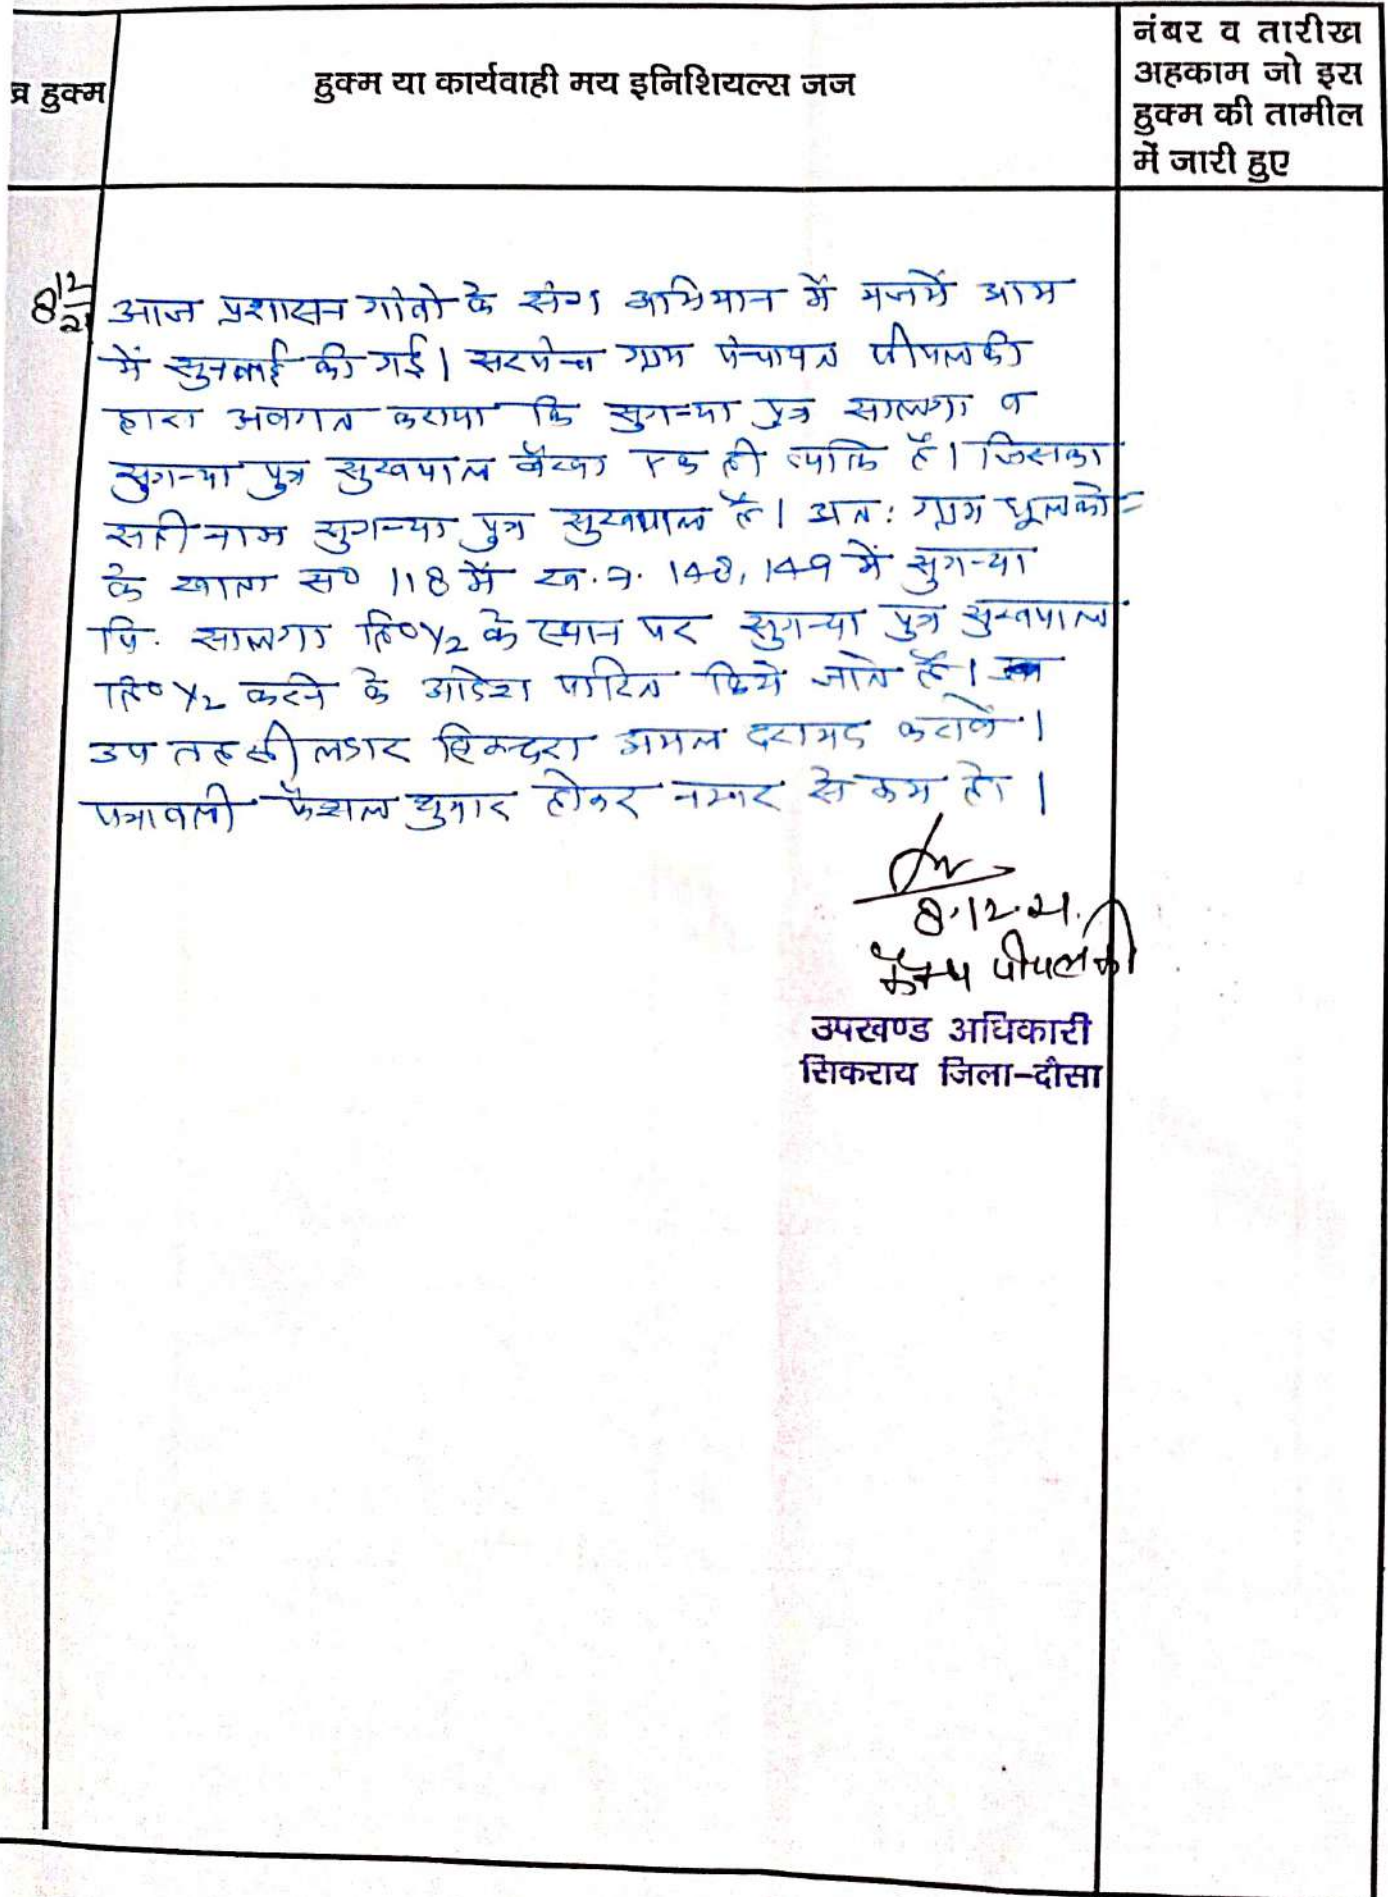 व हुक्म
हुक्म या कार्यवाही मय इनिशियल्स जज
नंबर व तारीख
अहकाम जो इस
हुक्म की तामील
में जारी हुए
8 12/21
आज प्रशासन गांवो के संग अभियान में मजमें आम
में सुनवाई की गई। सरपंच ग्राम पंचायत पीपलकी
द्वारा अवगत कराया कि सुगन्या पुत्र सालगा व
सुगन्या पुत्र सुखपाल बैरवा एक ही व्यक्ति है। जिसका
सही नाम सुगन्या पुत्र सुखपाल है। अतः ग्राम धूलकोट
के खाता स० 118 में ख.न. 148, 149 में सुगन्या
पि. सालगा हि० 1/2 के स्थान पर सुगन्या पुत्र सुखपाल
हि० 1/2 करने के आदेश पारित किये जाते है।
उप तहसीलदार सिकन्दरा अमल दरामद करावे।
पत्रावली फैसल शुमार होकर नम्बर से कम हो।
8.12.21.
कैम्प पीपलकी
उपखण्ड अधिकारी
सिकराय जिला-दौसा